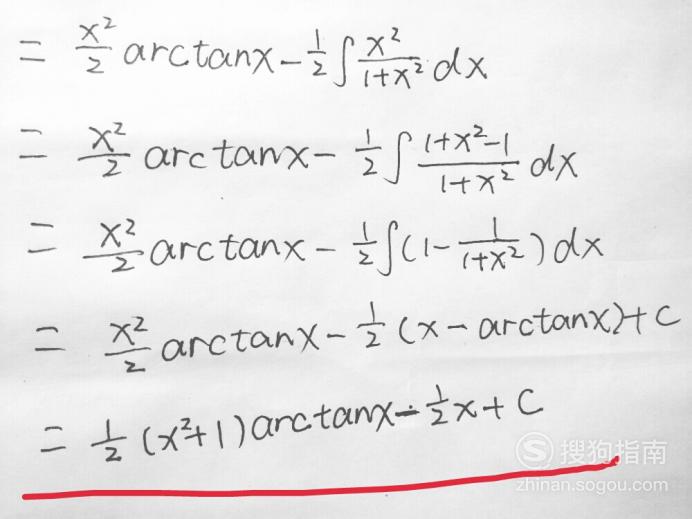 = x²/2 arctanx - 1/2 ∫ x²/(1+x²) dx
= x²/2 arctanx - 1/2 ∫ (1+x²-1)/(1+x²) dx
= x²/2 arctanx - 1/2 ∫(1 - 1/(1+x²)) dx
= x²/2 arctanx - 1/2 (x - arctanx) + C
= 1/2 (x²+1) arctanx - 1/2 x + C
S 搜狗指南
zhinan.sogou.com